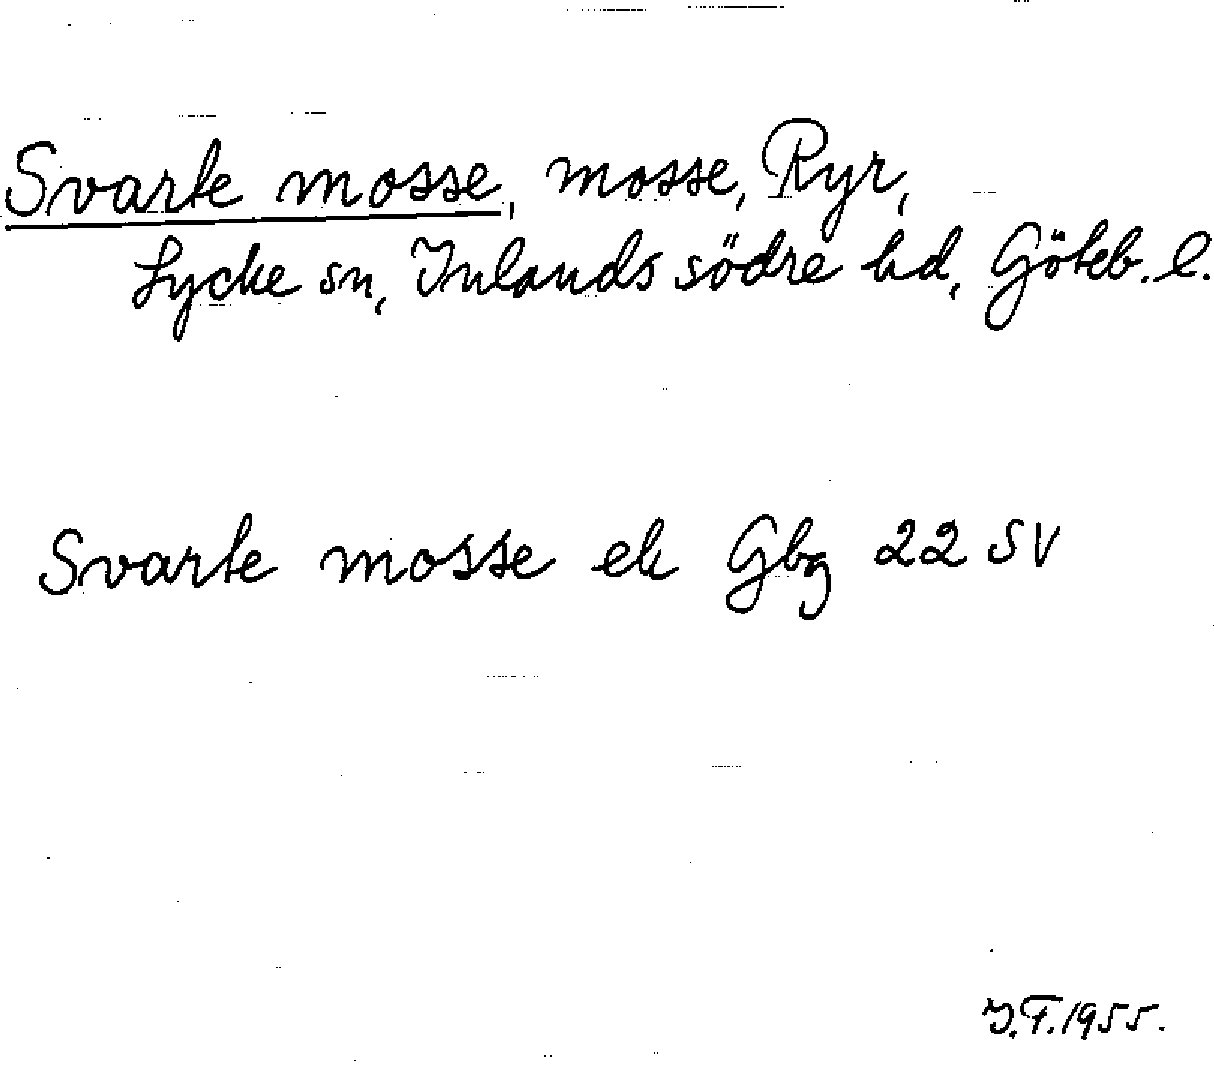 Svarte mosse, mosse, Ryr,
Lycke sn, Inlands södre hd, Göteb. l.
Svarte mosse ek Gbg 22 SV
I.F. 1955.